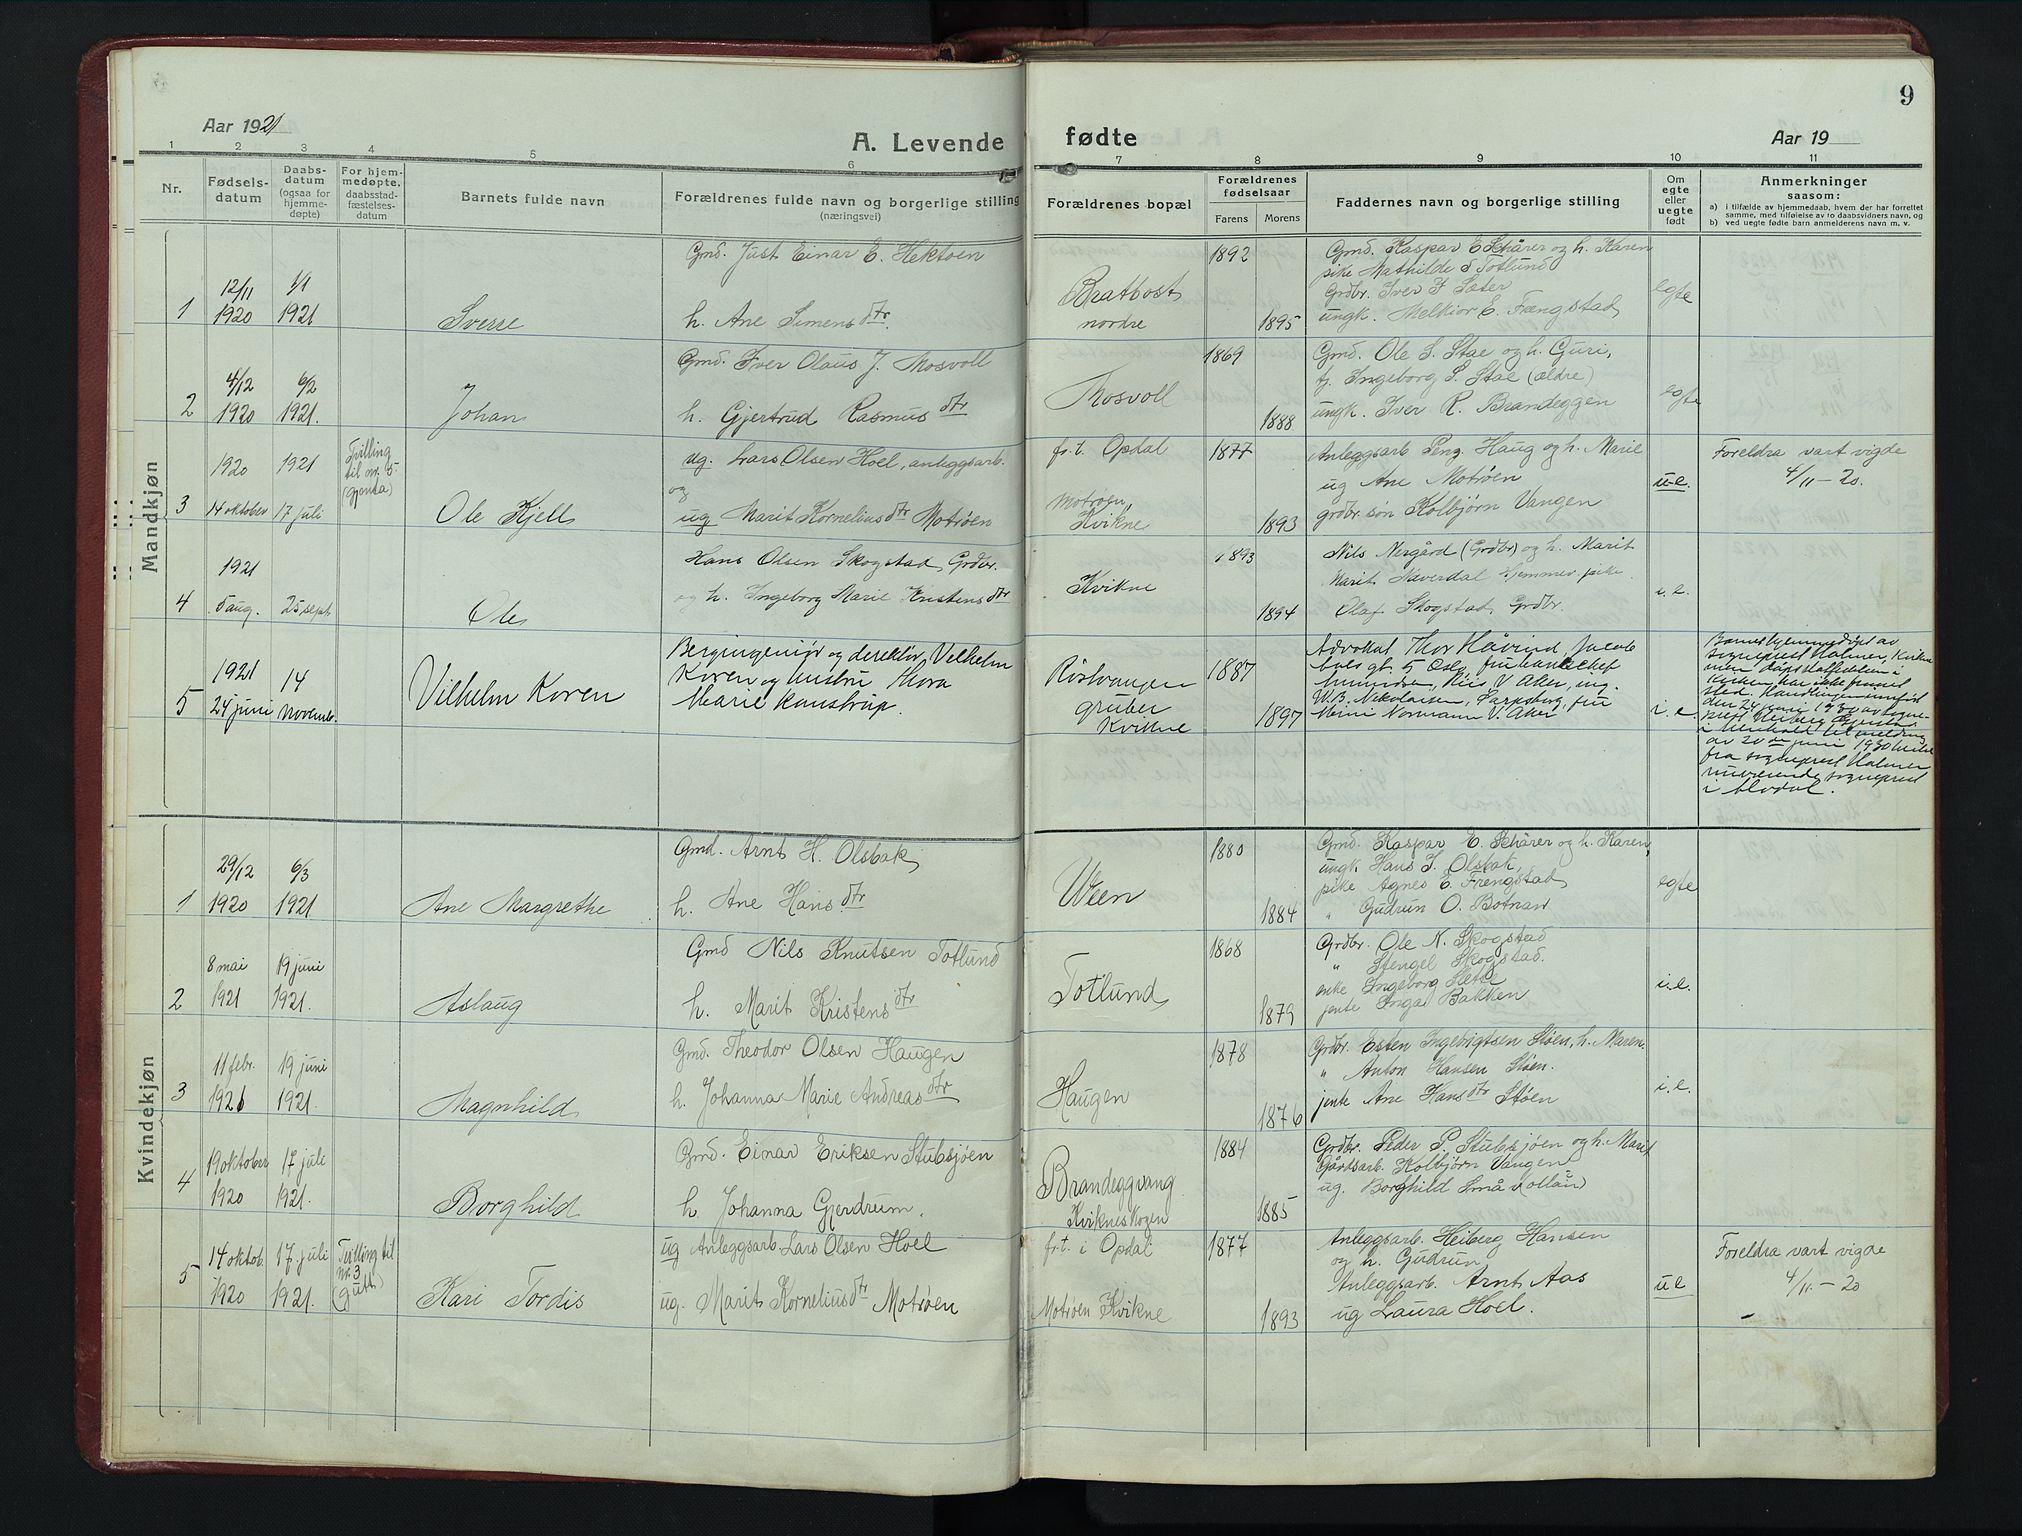 9
Aar 1921
A. Levende
fødte
Aar 19
1 2 3 4 5 6 7 8 9 10 11
Nr.
Fødsels-
datum
Daabs-
datum
(ogsaa for
hjemme-
døpte)
For hjem-
medøpte,
daabsstad-
fæstelses-
datum
Barnets fulde navn
Forældrenes fulde navn og borgerlige stilling
(næringsvei)
Forældrenes bopæl
Forældrenes
fødselsaar
Farens Morens
Faddernes navn og borgerlige stilling
Om
egte
eller
uegte
født
Anmerkninger
saasom:
a) i tilfælde av hjemmedaab, hvem der har forrettet
samme, med tilføielse av to daabsvidners navn, og
b) ved uegte født barn anmelderens navn m. v.
Mandkjøn
1
12/11
1920
1/1
1921
Sverre
Gmd. Just Einar E. Hektoen
h. Ane Simensdtr.
Bratbost
nordre
1892
1895
Gmd. Kaspar E Schärer og h. Karen
pike Mathilde S Totlund
Grdbr. Iver I Sæter
ungk. Melkior E. Frengstad
egte
2
4/12
1920
6/2
1921.
Johan
Gmd. Iver Olaus J. Mosvoll
h. Gjertrud Rasmusdtr
Mosvoll
1869
1888
Gmd. Ole S. Stae og h. Guri,
tj. Ingeborg S. Stae (ældre)
ungk. Iver R. Brandeggen
egte
3
1920
14 oktober
1921
17 juli
Tvilling
til nr. 5
(gjenta)
Ole Kjell
ug. Lars Olsen Hoel, anleggsarb.
og
ug Marit Korneliusdtr Motrøen
frt. Opdal
Motrøen,
Kvikne
1877
1893
Anleggsarb Haug og h. Marie
ug Ane Motrøen
grdbr.søn Kolbjørn Vangen
u.e.
Foreldra vart vigde
4/11 – 20.
4
1921
5 aug.
25 sept.
Ole
Hans Olsen Skogstad, Grdbr.
og h. Ingeborg Marie Kristensdtr
Kvikne
1893
1894
Nils Nergård (Grdbr) og h. Marit
Marit Næverdal hjemmev. pike.
Olaf Skogstad, Grdbr.
i. e.
5
1921
24 juni
14
Novemb.
Vilhelm Koren
Bergingeniør og direktør Vilhelm
Koren og hustru Thora
Marie Kaustrup.
Røstvangen
gruber
Kvikne
1887
1897
Advokat Thor Håvind, Jacob
Aals gt. 5 Oslo, fru bankchef
Amundsen, Riis V. Aker, ing.
W.B. Nikolaisen, Sarpsborg, fru
Mimi Normann V. Aker
i. e.
Barnet hjemmedøpt av
sogneprest Halmer, Kvikne
men dåpsstadfestelse i
kirken har ikke funnet
sted. Handlingen innført
den 24 juni 1930 av sogne-
prest
i henhold til melding
av 20de juni 1930
fra sogneprest Halmer
nuværende sogneprest
i Alvdal.
Kvindekjøn
1
29/12
1920
6/3
1921
Ane Margrethe
Gmd. Arnt H. Olsbak,
h. Ane Hansdtr
Ween
1880
1884
Gmd. Kaspar E. Schärer og h. Karen,
ungk. Hans S. Olsbak,
pike Agnes E. Frengstad
" Gudrun O. Botnan
egte
2
8 mai
1921
19 juni
1921.
Aslaug
Gmd Nils Knutsen Totlund
h. Marit Kristensdtr
Totlund
1868
1879
Grdbr. Ole N. Skogstad
" Stengel Skogstad.
enke Ingeborg Slette
jente Inga Bakken
i.e.
3
11 febr.
1921
19 juni
1921.
Magnhild
Gmd. Theodor Olsen Haugen
h. Johanna Marie Andreasdtr
Haugen
1878
1876
Grdbr. Esten Ingebrigtsen Støen, h. Maren.
" Anton Hansen Støen.
jente Ane Hansdtr Støen
i.e.
4
19 oktober
1920
17 juli
1921.
Borghild
Gmd. Einar Eriksen Stubsjøen
h. Johanna Gjerdrum.
Brandeggvang
Kvikneskogen
1884
1885
Grdbr. Peder P. Stubsjøen og h. Marit
Gårdsarb. Kolbjørn Vangen
ug. Borghild Småvollan
5
14 oktob.
1920
17. juli
1921.
Tvilling til
nr. 3
(gutt)
Kari Tordis
ug Anleggsarb. Lars Olsen Hoel
ug. Marit Korneliusdtr Motrøen
frt. i Opdal
Motrøen Kvikne
1877
1893
Anleggsarb. Heiberg Hansen
og h. Gudrun
Anleggsarb. Arnt Aas
ug Laura Hoel.
u e
Foreldra vart vigde
4/11 – 20